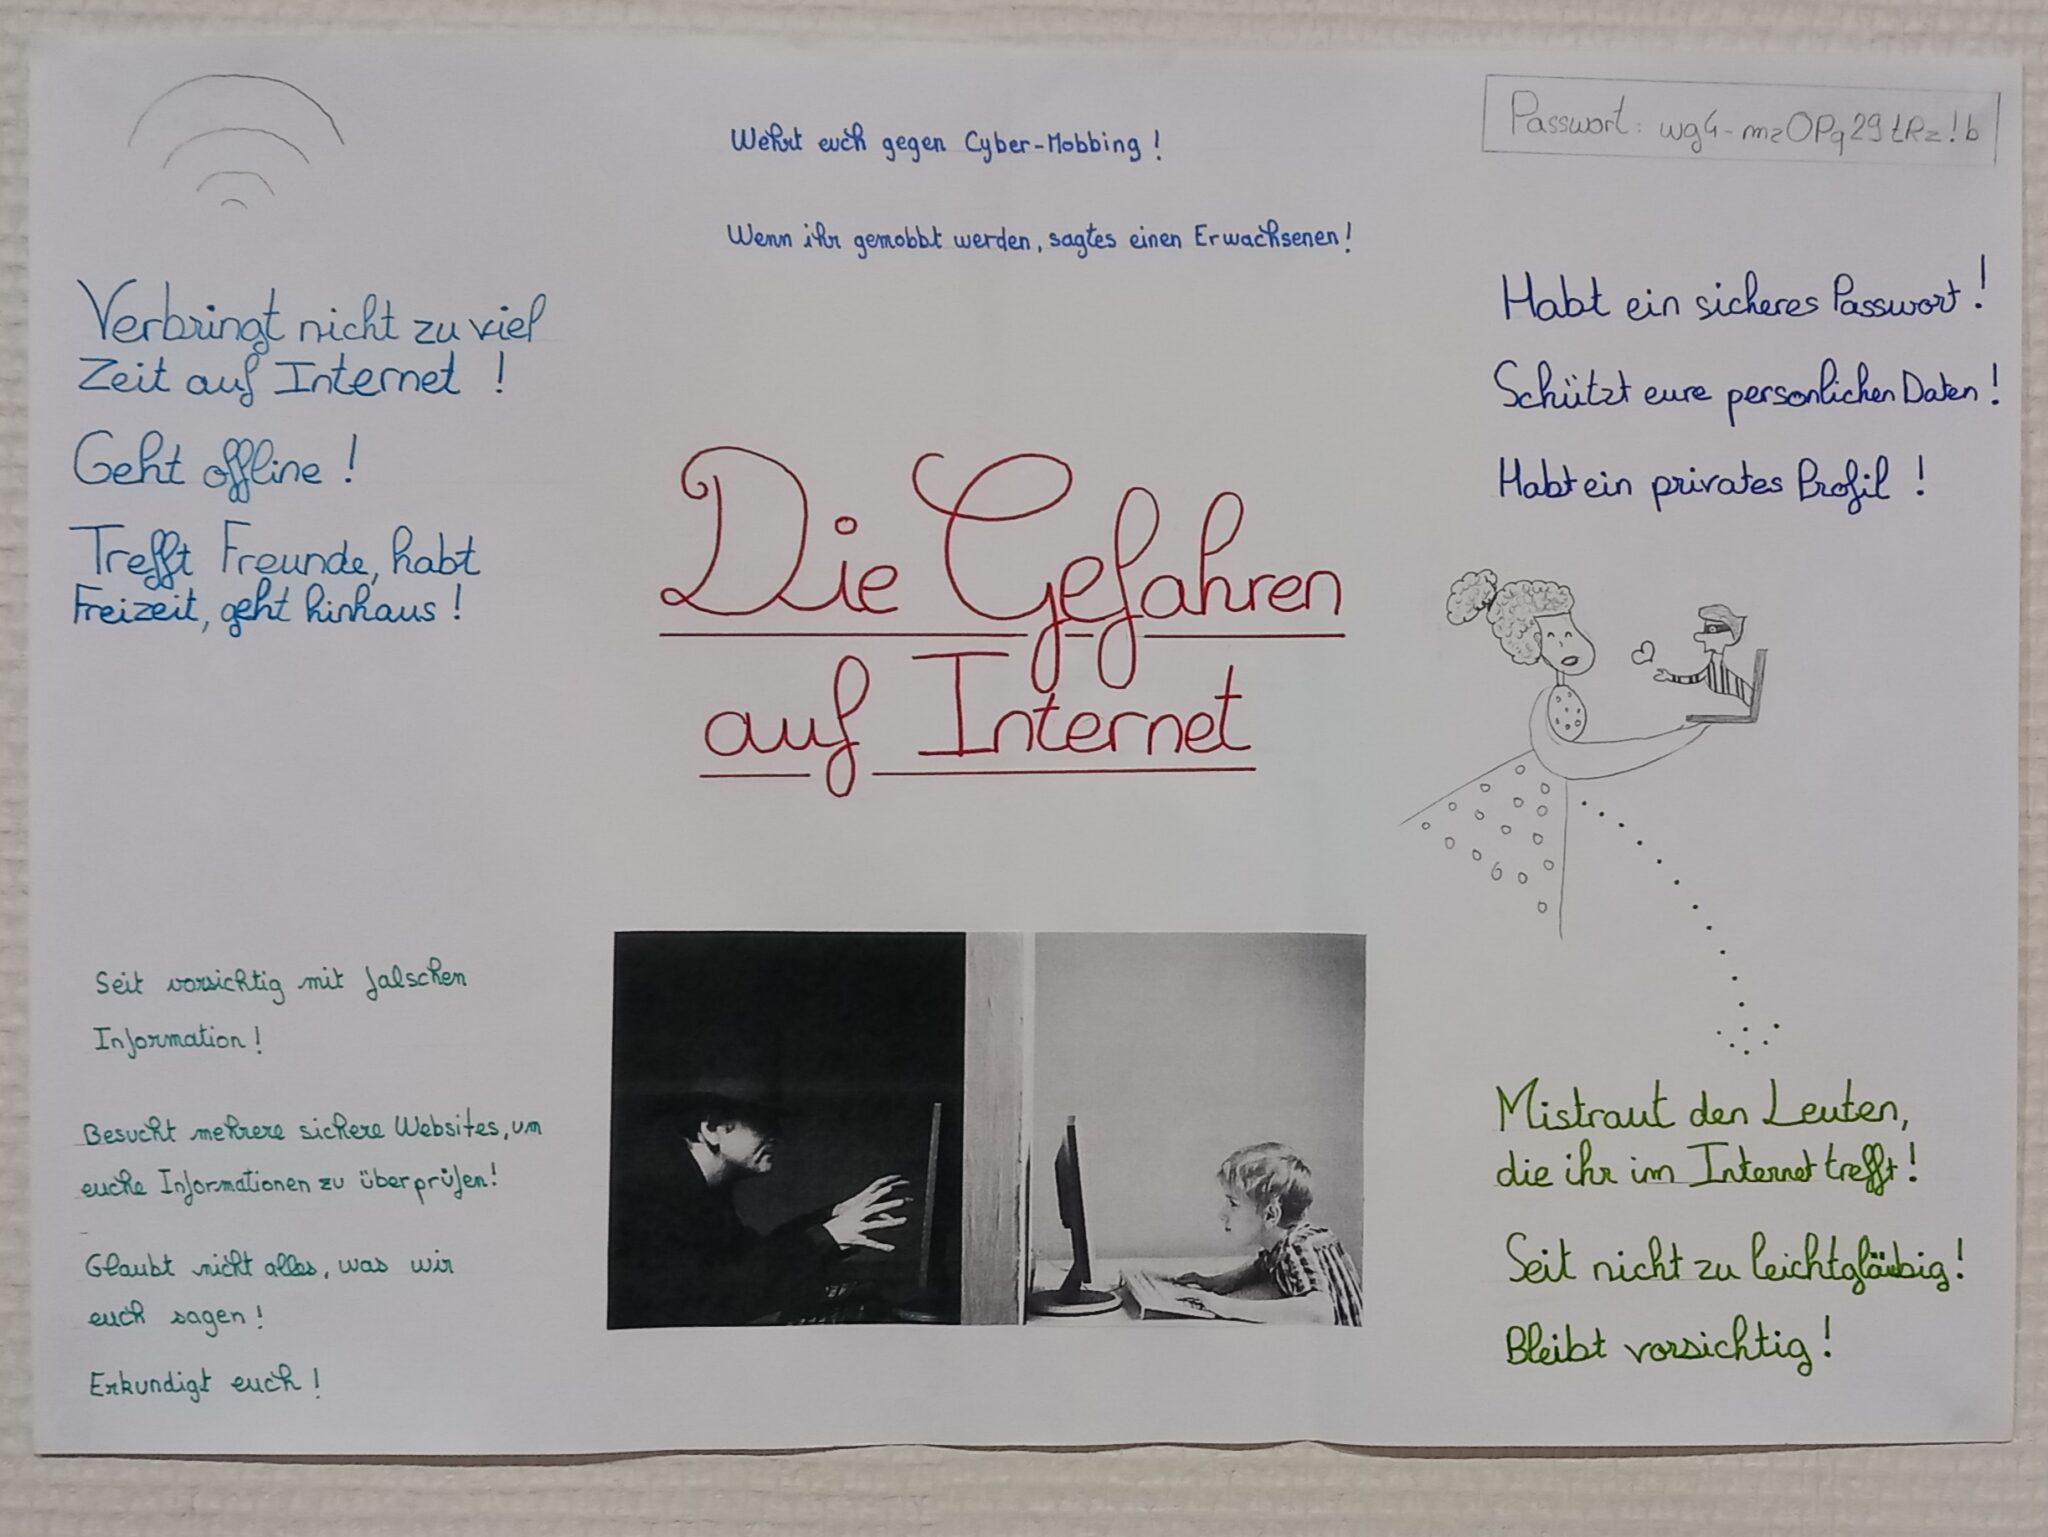 Wehrt euch gegen Cyber-Mobbing !
Wenn ihr gemobbt werden, sagtes einen Erwachsenen !
Passwort: wg4-mzOPq29tRz!b
Verbringt nicht zu viel
Zeit auf Internet !
Geht offline !
Trefft Freunde, habt
Freizeit, geht hinhaus !
Habt ein sicheres Passwort !
Schützt eure personlichen Daten !
Habt ein privates Profil !
Die Gefahren
auf Internet
Seit vorsichtig mit falschen
Information !
Besucht mehrere sichere Websites, um
euche Informationen zu überprüfen !
Glaubt nicht alles, was wir
euch sagen !
Erkundigt euch !
Mistraut den Leuten,
die ihr im Internet trefft !
Seit nicht zu leichtgläubig !
Bleibt vorsichtig !